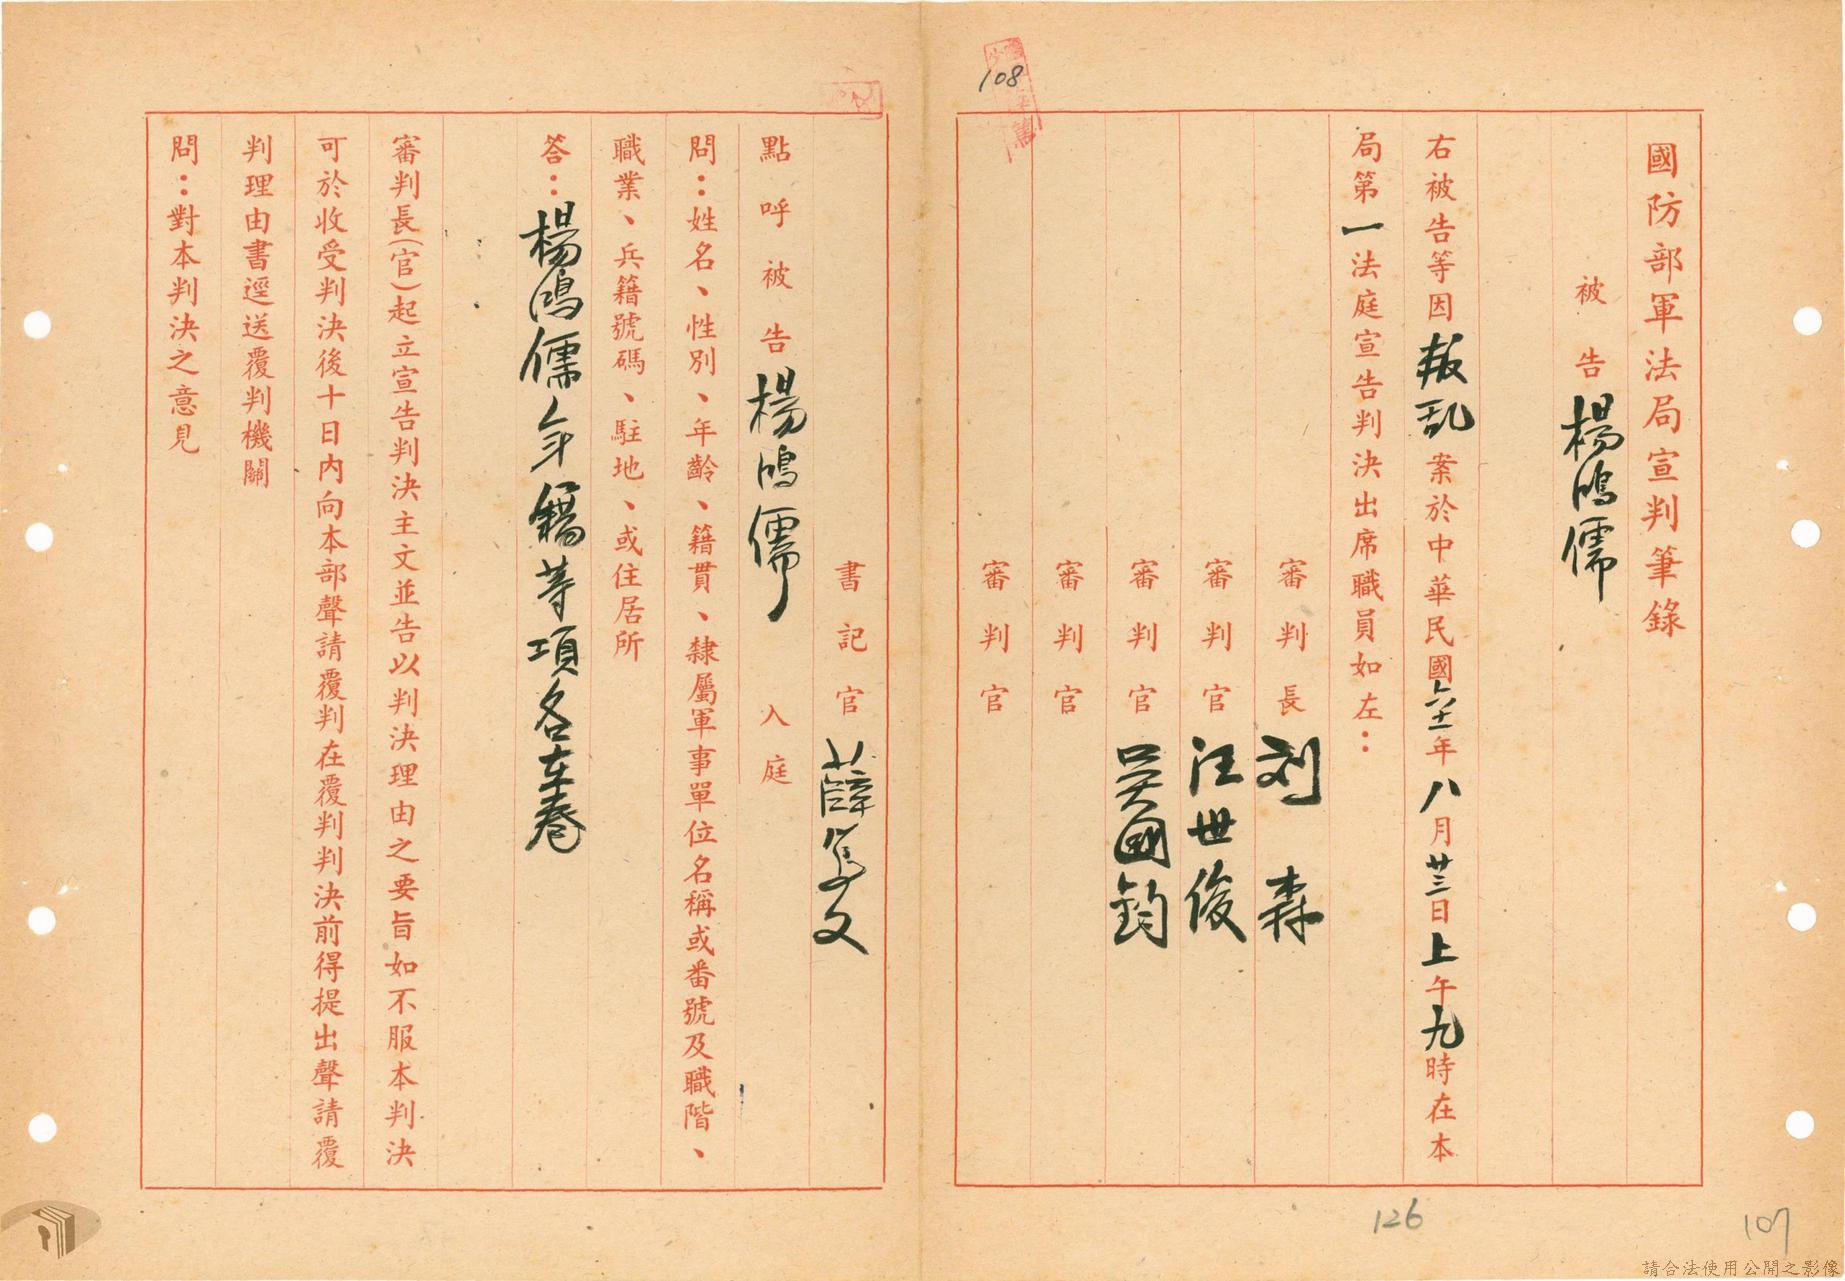 國防部軍法局宣判筆錄
被告楊鴻儒
右被告等因叛乱案於中華民國六十一年八月廿三日上午九時在本
局第一法庭宣告判決出席職員如左：
審判長刘森
審判官汪世俊
審判官吴國鈞
審判官
審判官
108
書記官薛隻文
點呼被告楊鴻儒入庭
問：姓名、性別、年齡、籍貫、隸屬軍事單位名稱或番號及職階、
職業、兵籍號碼、駐地、或住居所
答：楊鴻儒年籍等項各在卷
審判長(官)起立宣告判決主文並告以判決理由之要旨如不服本判決
可於收受判決後十日内向本部聲請覆判在覆判判決前得提出聲請覆
判理由書逕送覆判機關
問：對本判決之意見
126
107
請合法使用公開之影像